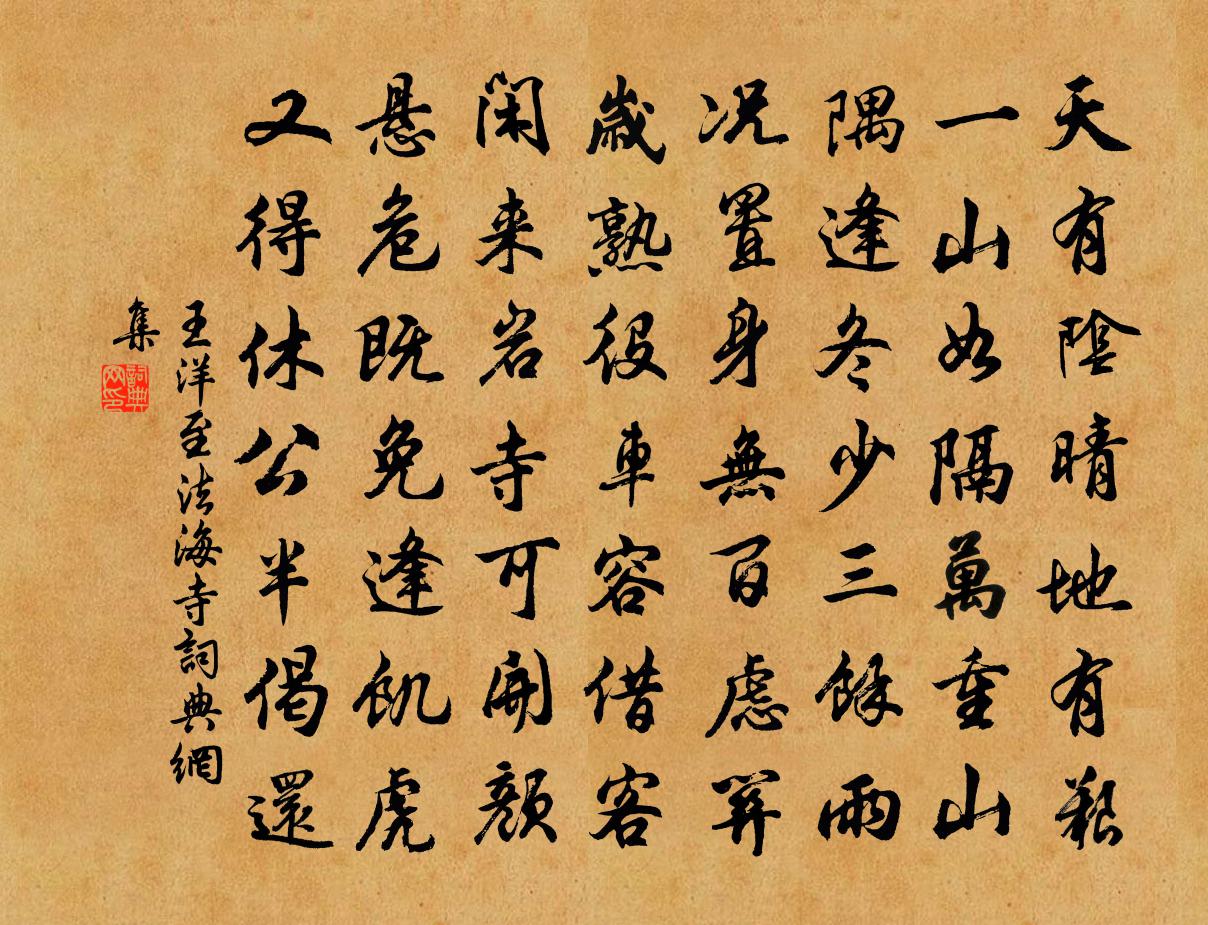 天有陰晴地有艱
一山如隔萬重山
隅逢冬少三餘雨
况置身無百慮關
歲熟役車容借客
閑来岩寺可開顏
懸危既免逢飢虎
又得休公半偈還
王洋至法海寺詞典網
集
詞典网印